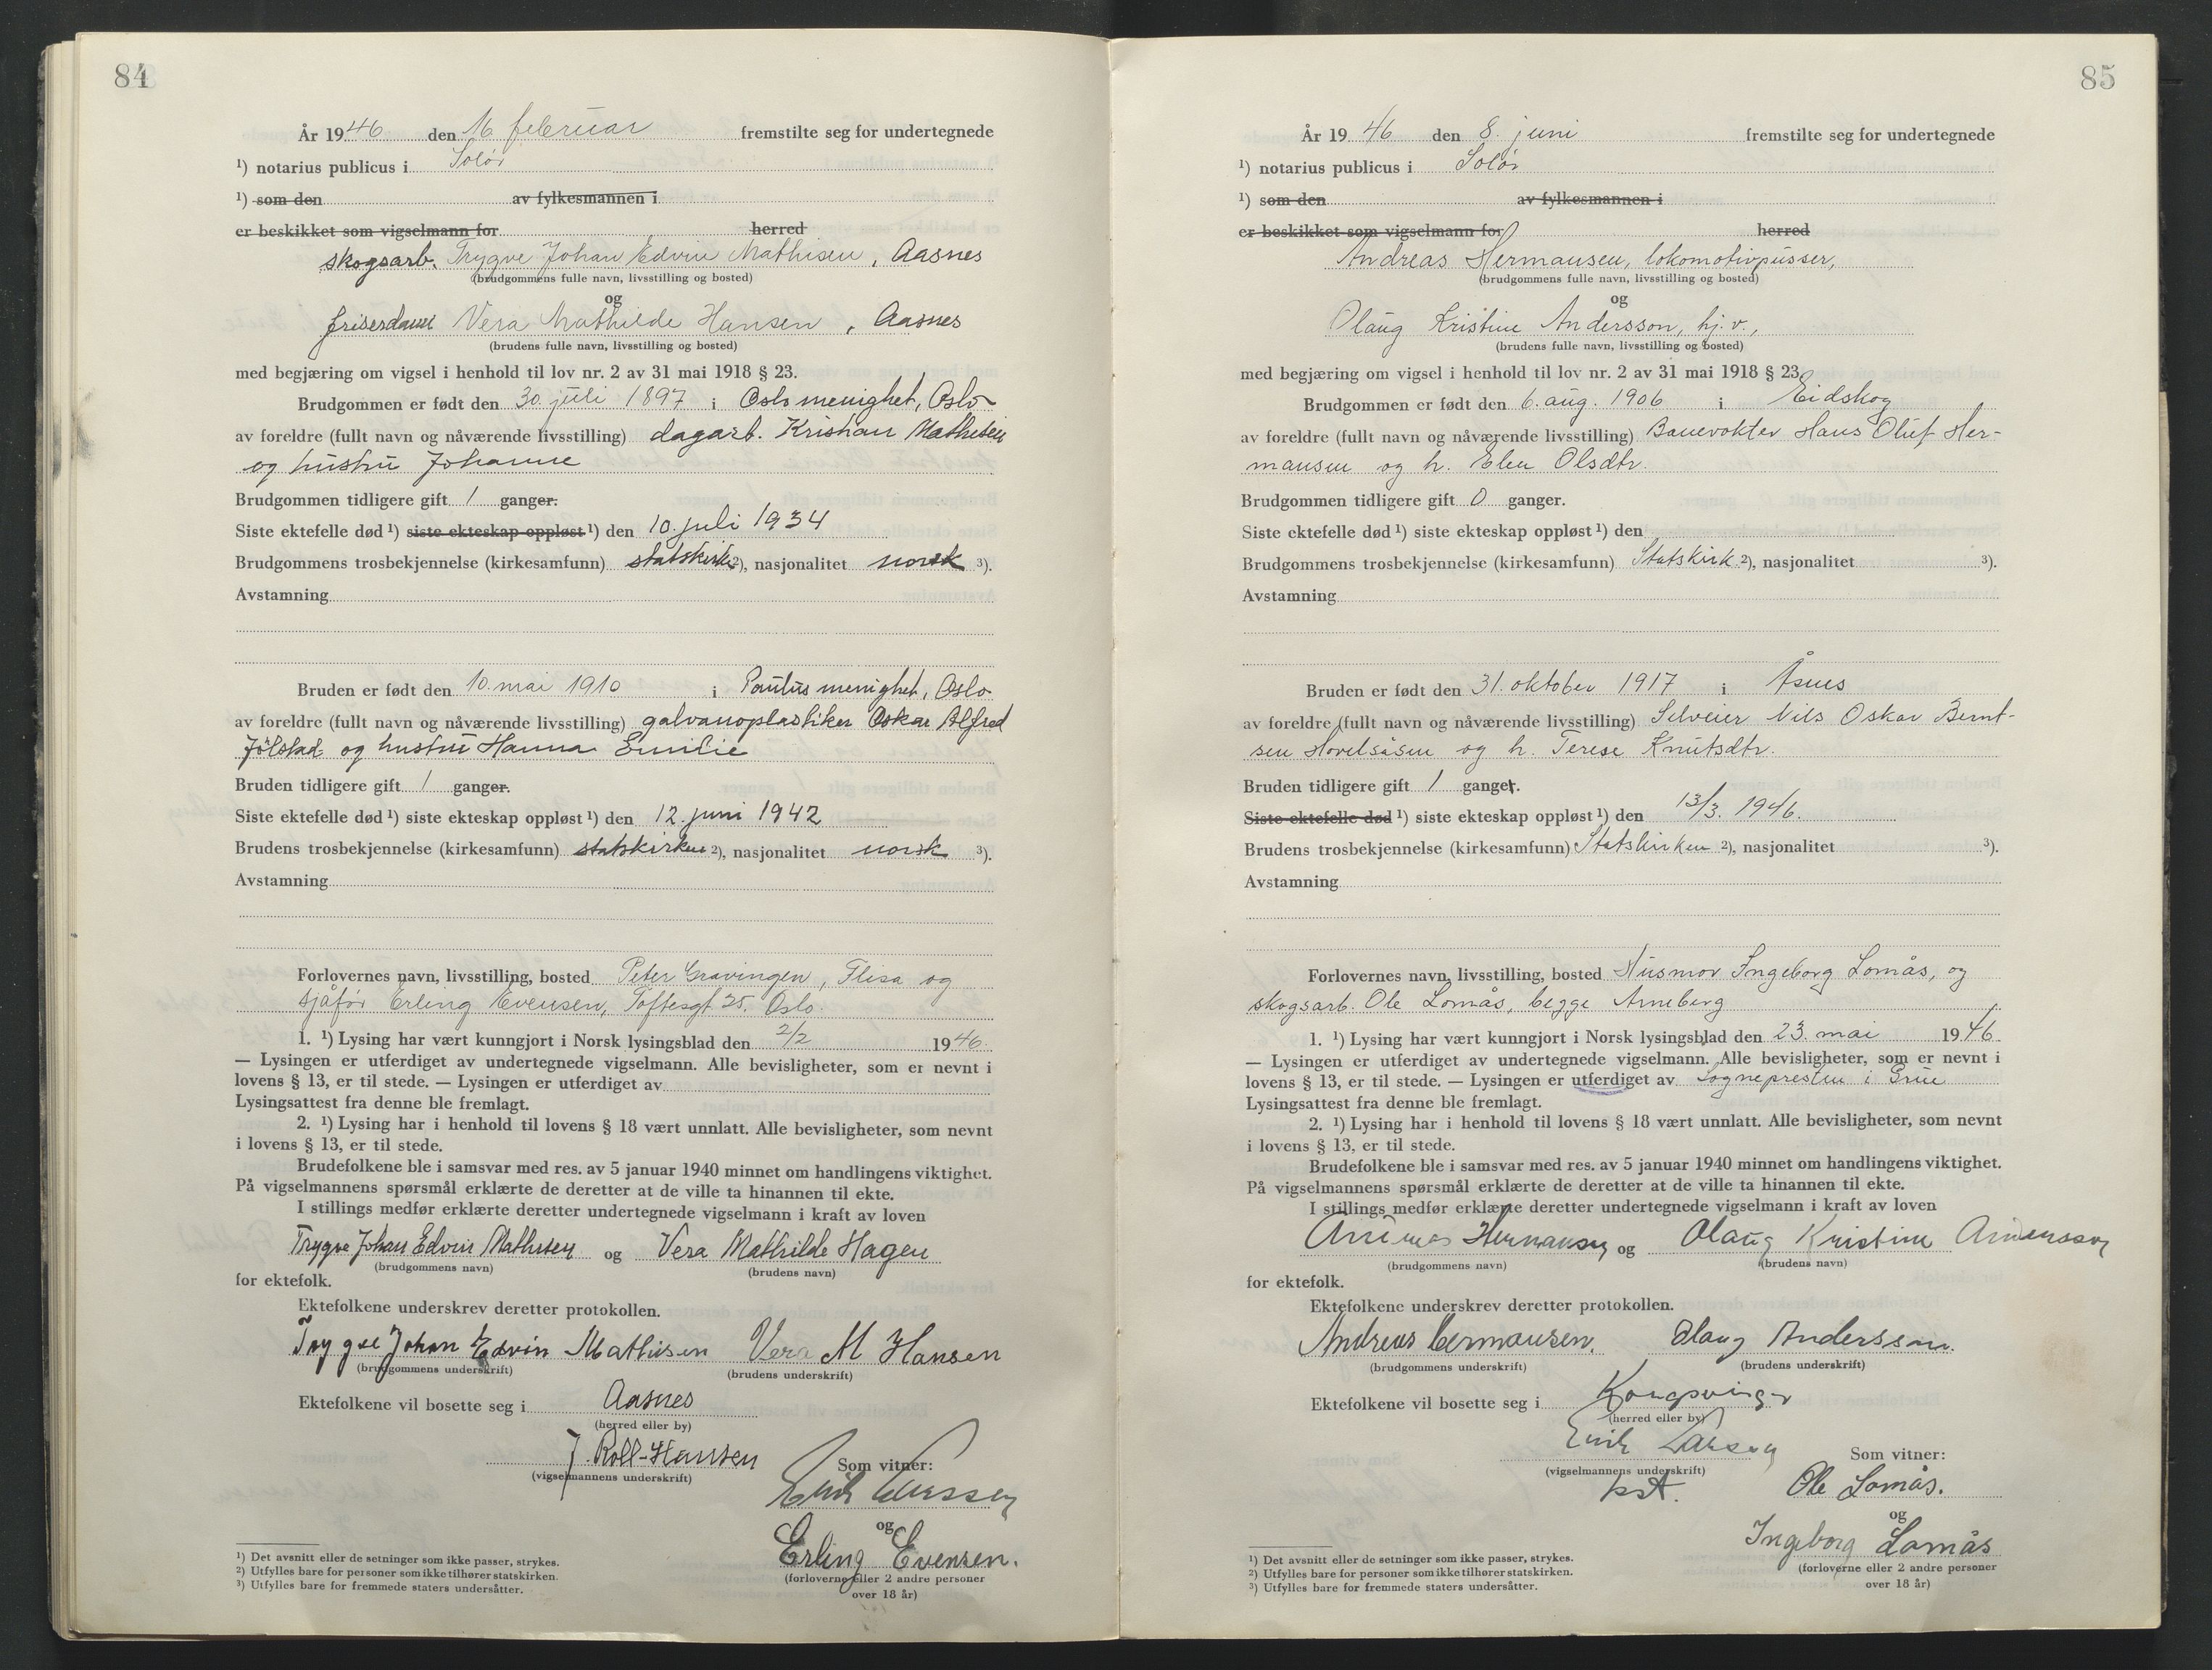 84
År 1946 den 16 februar fremstilte seg for undertegnede
¹) notarius publicus i Solør
¹) som den av fylkesmannen i
er beskikket som vigselmann for herred
skogsarb. Trygve Johan Edvin Mathisen, Aasnes
(brudgommens fulle navn, livsstilling og bosted)
og
friserdame Vera Mathilde Hansen, Aasnes
(brudens fulle navn, livsstilling og bosted)
med begjæring om vigsel i henhold til lov nr. 2 av 31 mai 1918 § 23.
Brudgommen er født den 30. juli 1897 i Oslo menighet, Oslo
av foreldre (fullt navn og nåværende livsstilling) dagarb. Kristian Mathisen
og hustru Johanne
Brudgommen tidligere gift 1 ganger.
Siste ektefelle død ¹) siste ekteskap oppløst ¹) den 10. juli 1934
Brudgommens trosbekjennelse (kirkesamfunn) statskirke ²), nasjonalitet norsk ³).
Avstamning
Bruden er født den 10. mai 1910 i Paulus menighet, Oslo
av foreldre (fullt navn og nåværende livsstilling) galvanoplastiker Oskar Alfred
Jölstad og hustru Hanna Emilie
Bruden tidligere gift 1 ganger.
Siste ektefelle død ¹) siste ekteskap oppløst ¹) den 12. juni 1942
Brudens trosbekjennelse (kirkesamfunn) statskirken ²), nasjonalitet norsk ³).
Avstamning
Forlovernes navn, livsstilling, bosted Peter Gravingen, Flisa og
sjåfør Erling Evensen, Toftesgt 25, Oslo.
1. ¹) Lysing har vært kunngjort i Norsk lysingsblad den 2/2 1946.
— Lysingen er utferdiget av undertegnede vigselmann. Alle bevisligheter, som er nevnt i
lovens § 13, er til stede. — Lysingen er utferdiget av
Lysingsattest fra denne ble fremlagt.
2. ¹) Lysing har i henhold til lovens § 18 vært unnlatt. Alle bevisligheter, som nevnt
i lovens § 13, er til stede.
Brudefolkene ble i samsvar med res. av 5 januar 1940 minnet om handlingens viktighet.
På vigselmannens spørsmål erklærte de deretter at de ville ta hinannen til ekte.
I stillings medfør erklærte deretter undertegnede vigselmann i kraft av loven
Trygve Johan Edvin Mathisen og Vera Mathilde Hagen
(brudgommens navn) (brudens navn)
for ektefolk.
Ektefolkene underskrev deretter protokollen.
Trygve Johan Edvin Mathisen Vera M Hansen
(brudgommens underskrift) (brudens underskrift)
Ektefolkene vil bosette seg i Aasnes
(herred eller by)
J. Roll-Hansen
(vigselmannens underskrift)
Som vitner:
og
Erling Evensen.
(forloverne eller 2 andre personer
over 18 år)
¹) Det avsnitt eller de setninger som ikke passer, strykes.
²) Utfylles bare for personer som ikke tilhører statskirken.
³) Utfylles bare for fremmede staters undersåtter.
85
År 1946 den 8. juni fremstilte seg for undertegnede
¹) notarius publicus i Solør
¹) som den av fylkesmannen i
er beskikket som vigselmann for herred
Andreas Hermansen, lokomotivpusser,
(brudgommens fulle navn, livsstilling og bosted)
og
Olaug Kristine Andersson, hj. v.,
(brudens fulle navn, livsstilling og bosted)
med begjæring om vigsel i henhold til lov nr. 2 av 31 mai 1918 § 23.
Brudgommen er født den 6. aug. 1906 i Eidskog
av foreldre (fullt navn og nåværende livsstilling) Banevokter Hans Oluf Her-
mansen og h. Elen Olsdtr.
Brudgommen tidligere gift 0 ganger.
Siste ektefelle død ¹) siste ekteskap oppløst ¹) den
Brudgommens trosbekjennelse (kirkesamfunn) Statskirk. ²), nasjonalitet ³).
Avstamning
Bruden er født den 31. oktober 1917 i Åsnes
av foreldre (fullt navn og nåværende livsstilling) Selveier Nils Oskar Bernt-
sen Hovelsåsen og h. Terese Knutsdtr.
Bruden tidligere gift 1 ganger.
Siste ektefelle død ¹) siste ekteskap oppløst ¹) den 13/3. 1946.
Brudens trosbekjennelse (kirkesamfunn) Statskirken ²), nasjonalitet ³).
Avstamning
Forlovernes navn, livsstilling, bosted Husmor Ingeborg Lomås, og
skogsarb. Ole Lomås, begge Arneberg
1. ¹) Lysing har vært kunngjort i Norsk lysingsblad den 23. mai 1946
— Lysingen er utferdiget av undertegnede vigselmann. Alle bevisligheter, som er nevnt i
lovens § 13, er til stede. — Lysingen er utferdiget av sognepresten i Grue
Lysingsattest fra denne ble fremlagt.
2. ¹) Lysing har i henhold til lovens § 18 vært unnlatt. Alle bevisligheter, som nevnt
i lovens § 13, er til stede.
Brudefolkene ble i samsvar med res. av 5 januar 1940 minnet om handlingens viktighet.
På vigselmannens spørsmål erklærte de deretter at de ville ta hinannen til ekte.
I stillings medfør erklærte deretter undertegnede vigselmann i kraft av loven
Andreas Hermansen og Olaug Kristine Andersson
(brudgommens navn) (brudens navn)
for ektefolk.
Ektefolkene underskrev deretter protokollen.
Andreas Hermansen. Olaug Andersson.
(brudgommens underskrift) (brudens underskrift)
Ektefolkene vil bosette seg i Kongsvinger
(herred eller by)
Erik Larsen
(vigselmannens underskrift)
kst.
Som vitner:
Ole Lomås.
og
Ingeborg Lomås
(forloverne eller 2 andre personer
over 18 år)
¹) Det avsnitt eller de setninger som ikke passer, strykes.
²) Utfylles bare for personer som ikke tilhører statskirken.
³) Utfylles bare for fremmede staters undersåtter.